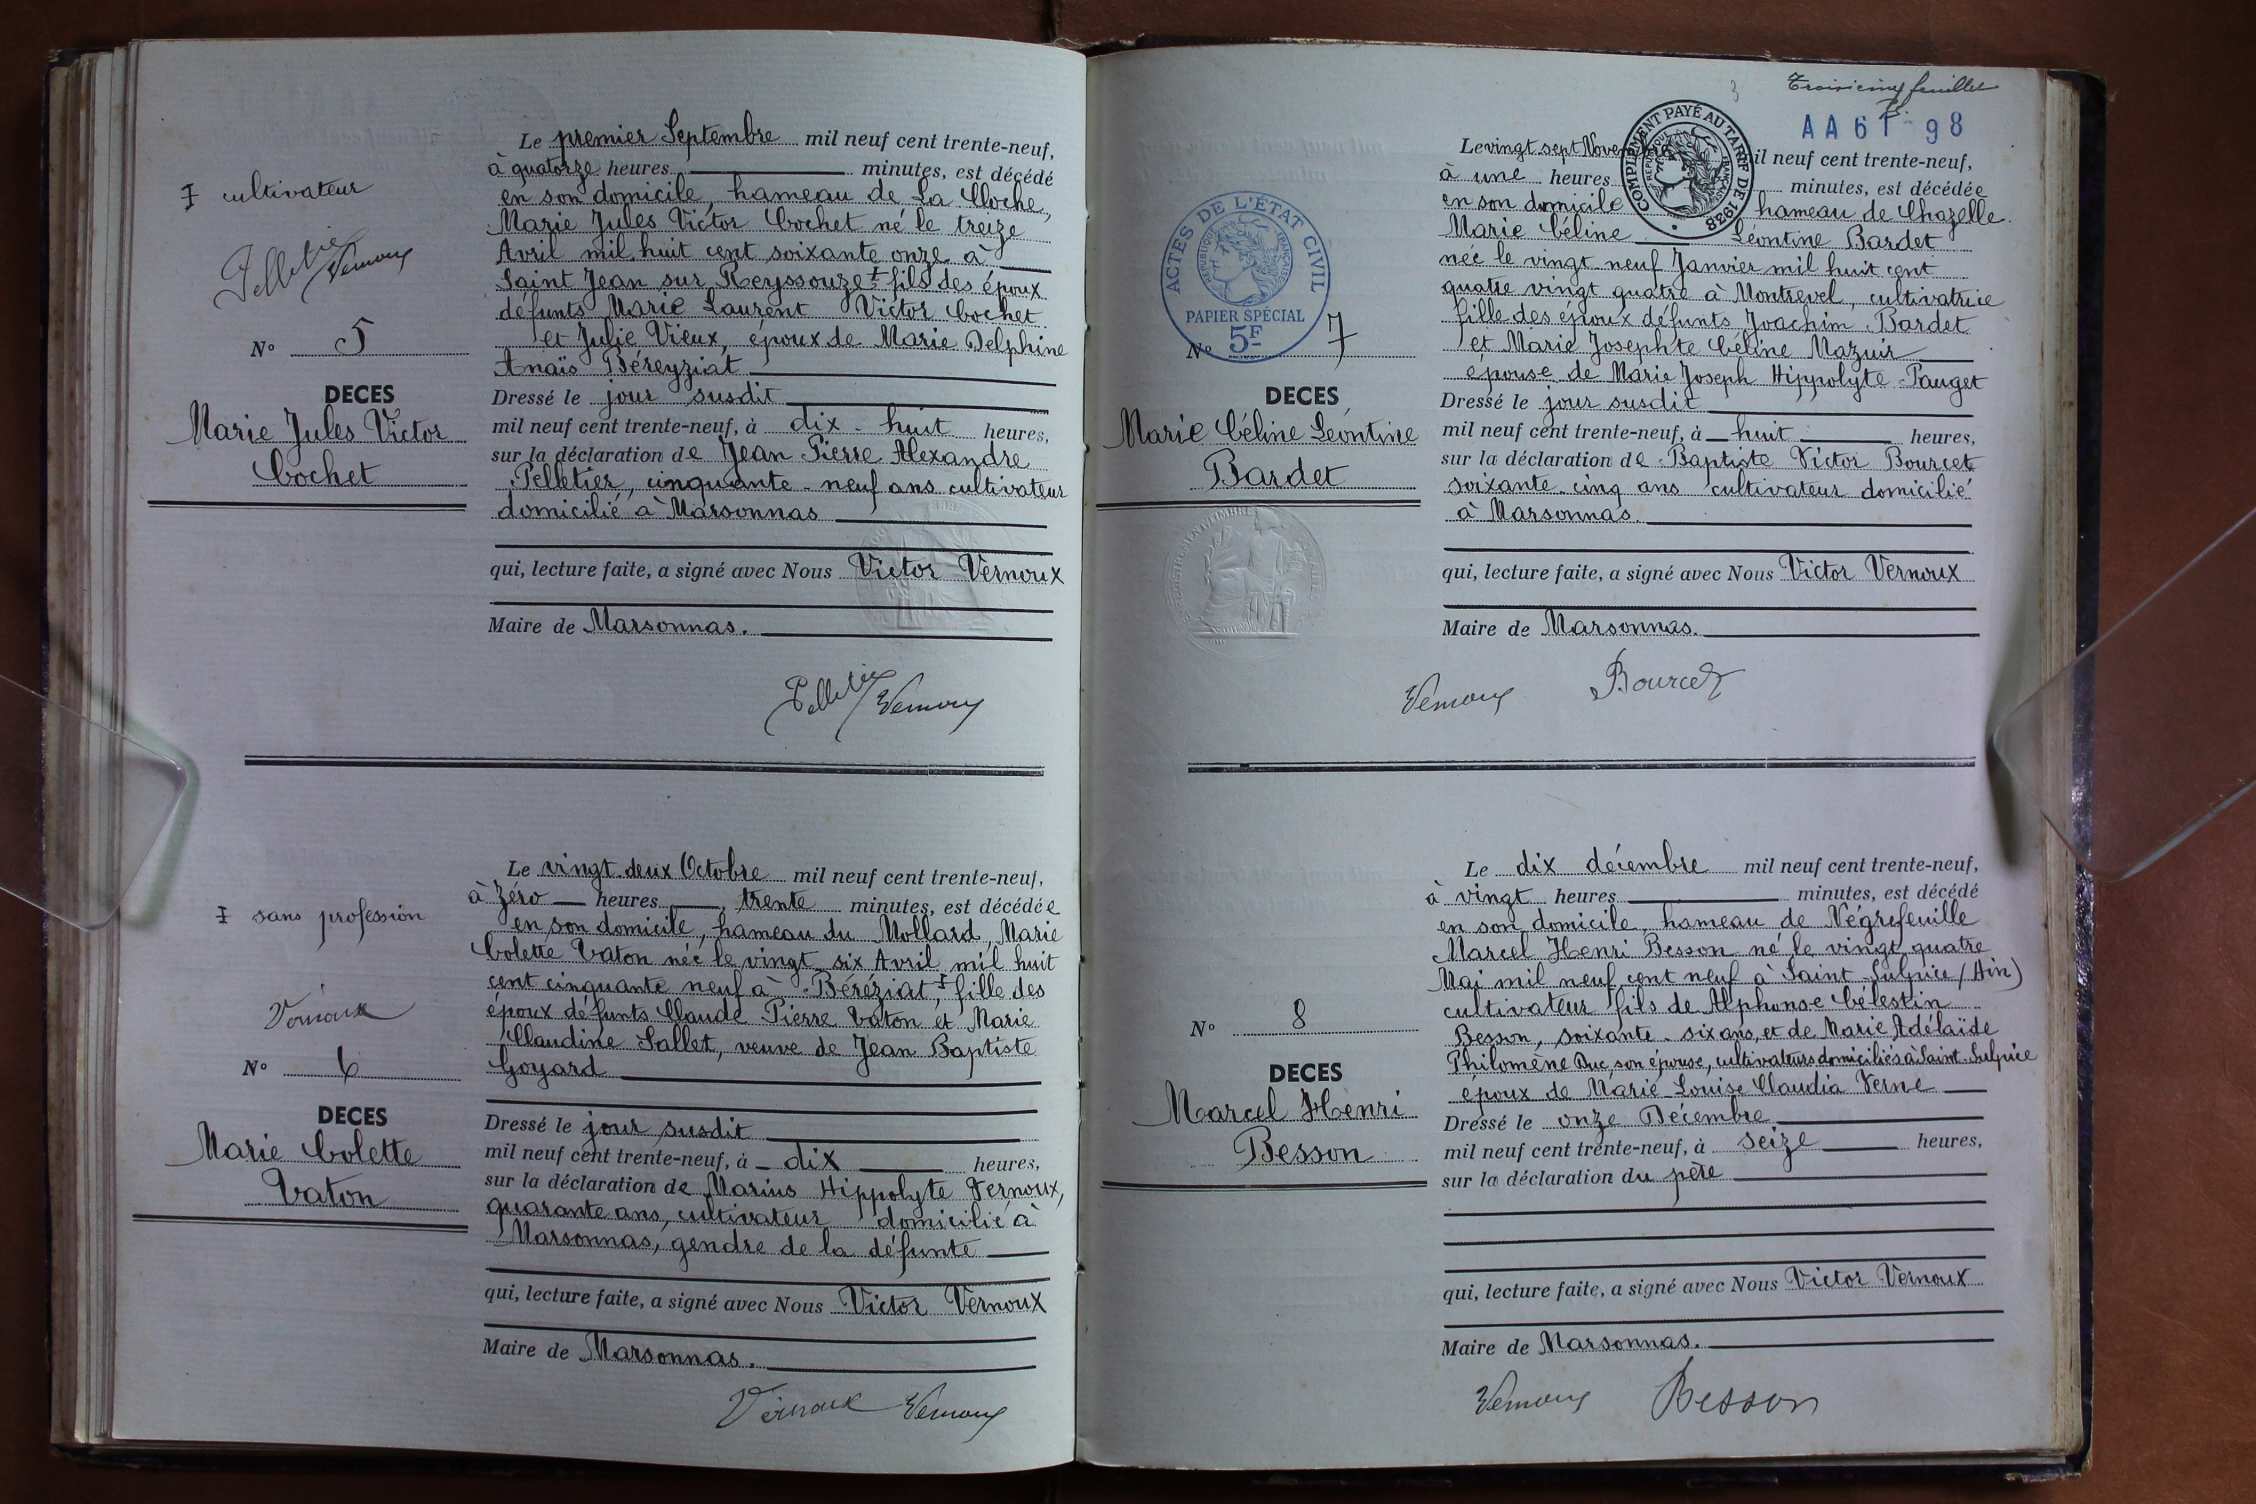 ‡ cultivateur
Pelletier Vernoux
N° 5
DECES
Marie Jules Victor
Cochet
Le premier Septembre mil neuf cent trente-neuf,
à quatorze heures minutes, est décédé
en son domicile, hameau de La Cloche,
Marie Jules Victor Cochet né le treize
Avril mil huit cent soixante onze à
Saint Jean sur Reyssouze ‡ fils des époux
défunts Marie Laurent Victor Cochet
et Julie Vieux, époux de Marie Delphine
Anaïs Béreyziat
Dressé le jour susdit
mil neuf cent trente-neuf, à dix-huit heures,
sur la déclaration de Jean Pierre Alexandre
Pelletier, cinquante-neuf ans cultivateur
domicilié à Marsonnas
qui, lecture faite, a signé avec Nous Victor Vernoux
Maire de Marsonnas.
Pelletier Vernoux
‡ sans profession
Vernoux
N° 6
DECES
Marie Colette
Vaton
Le vingt-deux Octobre mil neuf cent trente-neuf,
à zéro heures, trente minutes, est décédée
en son domicile, hameau du Mollard, Marie
Colette Vaton née le vingt-six Avril mil huit
cent cinquante neuf à Béréziat, ‡ fille des
époux défunts Claude Pierre Vaton et Marie
Claudine Sallet, veuve de Jean Baptiste
Goyard
Dressé le jour susdit
mil neuf cent trente-neuf, à dix heures,
sur la déclaration de Marius Hippolyte Vernoux,
quarante ans, cultivateur domicilié à
Marsonnas, gendre de la défunte
qui, lecture faite, a signé avec Nous Victor Vernoux
Maire de Marsonnas.
Vernoux Vernoux
3
Troisième feuillet
AA61 98
COMPLÉMENT PAYÉ AU TARIF DE 1938
RÉPUBLIQUE FRANÇAISE
ACTES DE L'ÉTAT CIVIL
RÉPUBLIQUE FRANÇAISE
PAPIER SPÉCIAL
5F
N° 7
DECES
Marie Céline Léontine
Bardet
Le vingt sept Novembre mil neuf cent trente-neuf,
à une heures minutes, est décédée
en son domicile hameau de Chazelle.
Marie Céline Léontine Bardet
née le vingt neuf Janvier mil huit cent
quatre vingt quatre à Montrevel, cultivatrice
fille des époux défunts Joachim Bardet
et Marie Josephte Céline Mazuir
épouse de Marie Joseph Hippolyte Pauget
Dressé le jour susdit
mil neuf cent trente-neuf, à huit heures,
sur la déclaration de Baptiste Victor Bourcet
soixante-cinq ans cultivateur domicilié
à Marsonnas.
qui, lecture faite, a signé avec Nous Victor Vernoux
Maire de Marsonnas.
Vernoux Bourcet
N° 8
DECES
Marcel Henri
Besson
Le dix décembre mil neuf cent trente-neuf,
à vingt heures minutes, est décédé
en son domicile, hameau de Négrefeuille
Marcel Henri Besson né le vingt quatre
Mai mil neuf cent neuf à Saint Sulpice (Ain)
cultivateur fils de Alphonse Célestin
Besson, soixante-six ans, et de Marie Adélaïde
Philomène Duc, son épouse, cultivateurs domiciliés à Saint-Sulpice
époux de Marie-Louise Claudia Verne
Dressé le onze Décembre
mil neuf cent trente-neuf, à seize heures,
sur la déclaration du père
qui, lecture faite, a signé avec Nous Victor Vernoux
Maire de Marsonnas.
Vernoux Besson